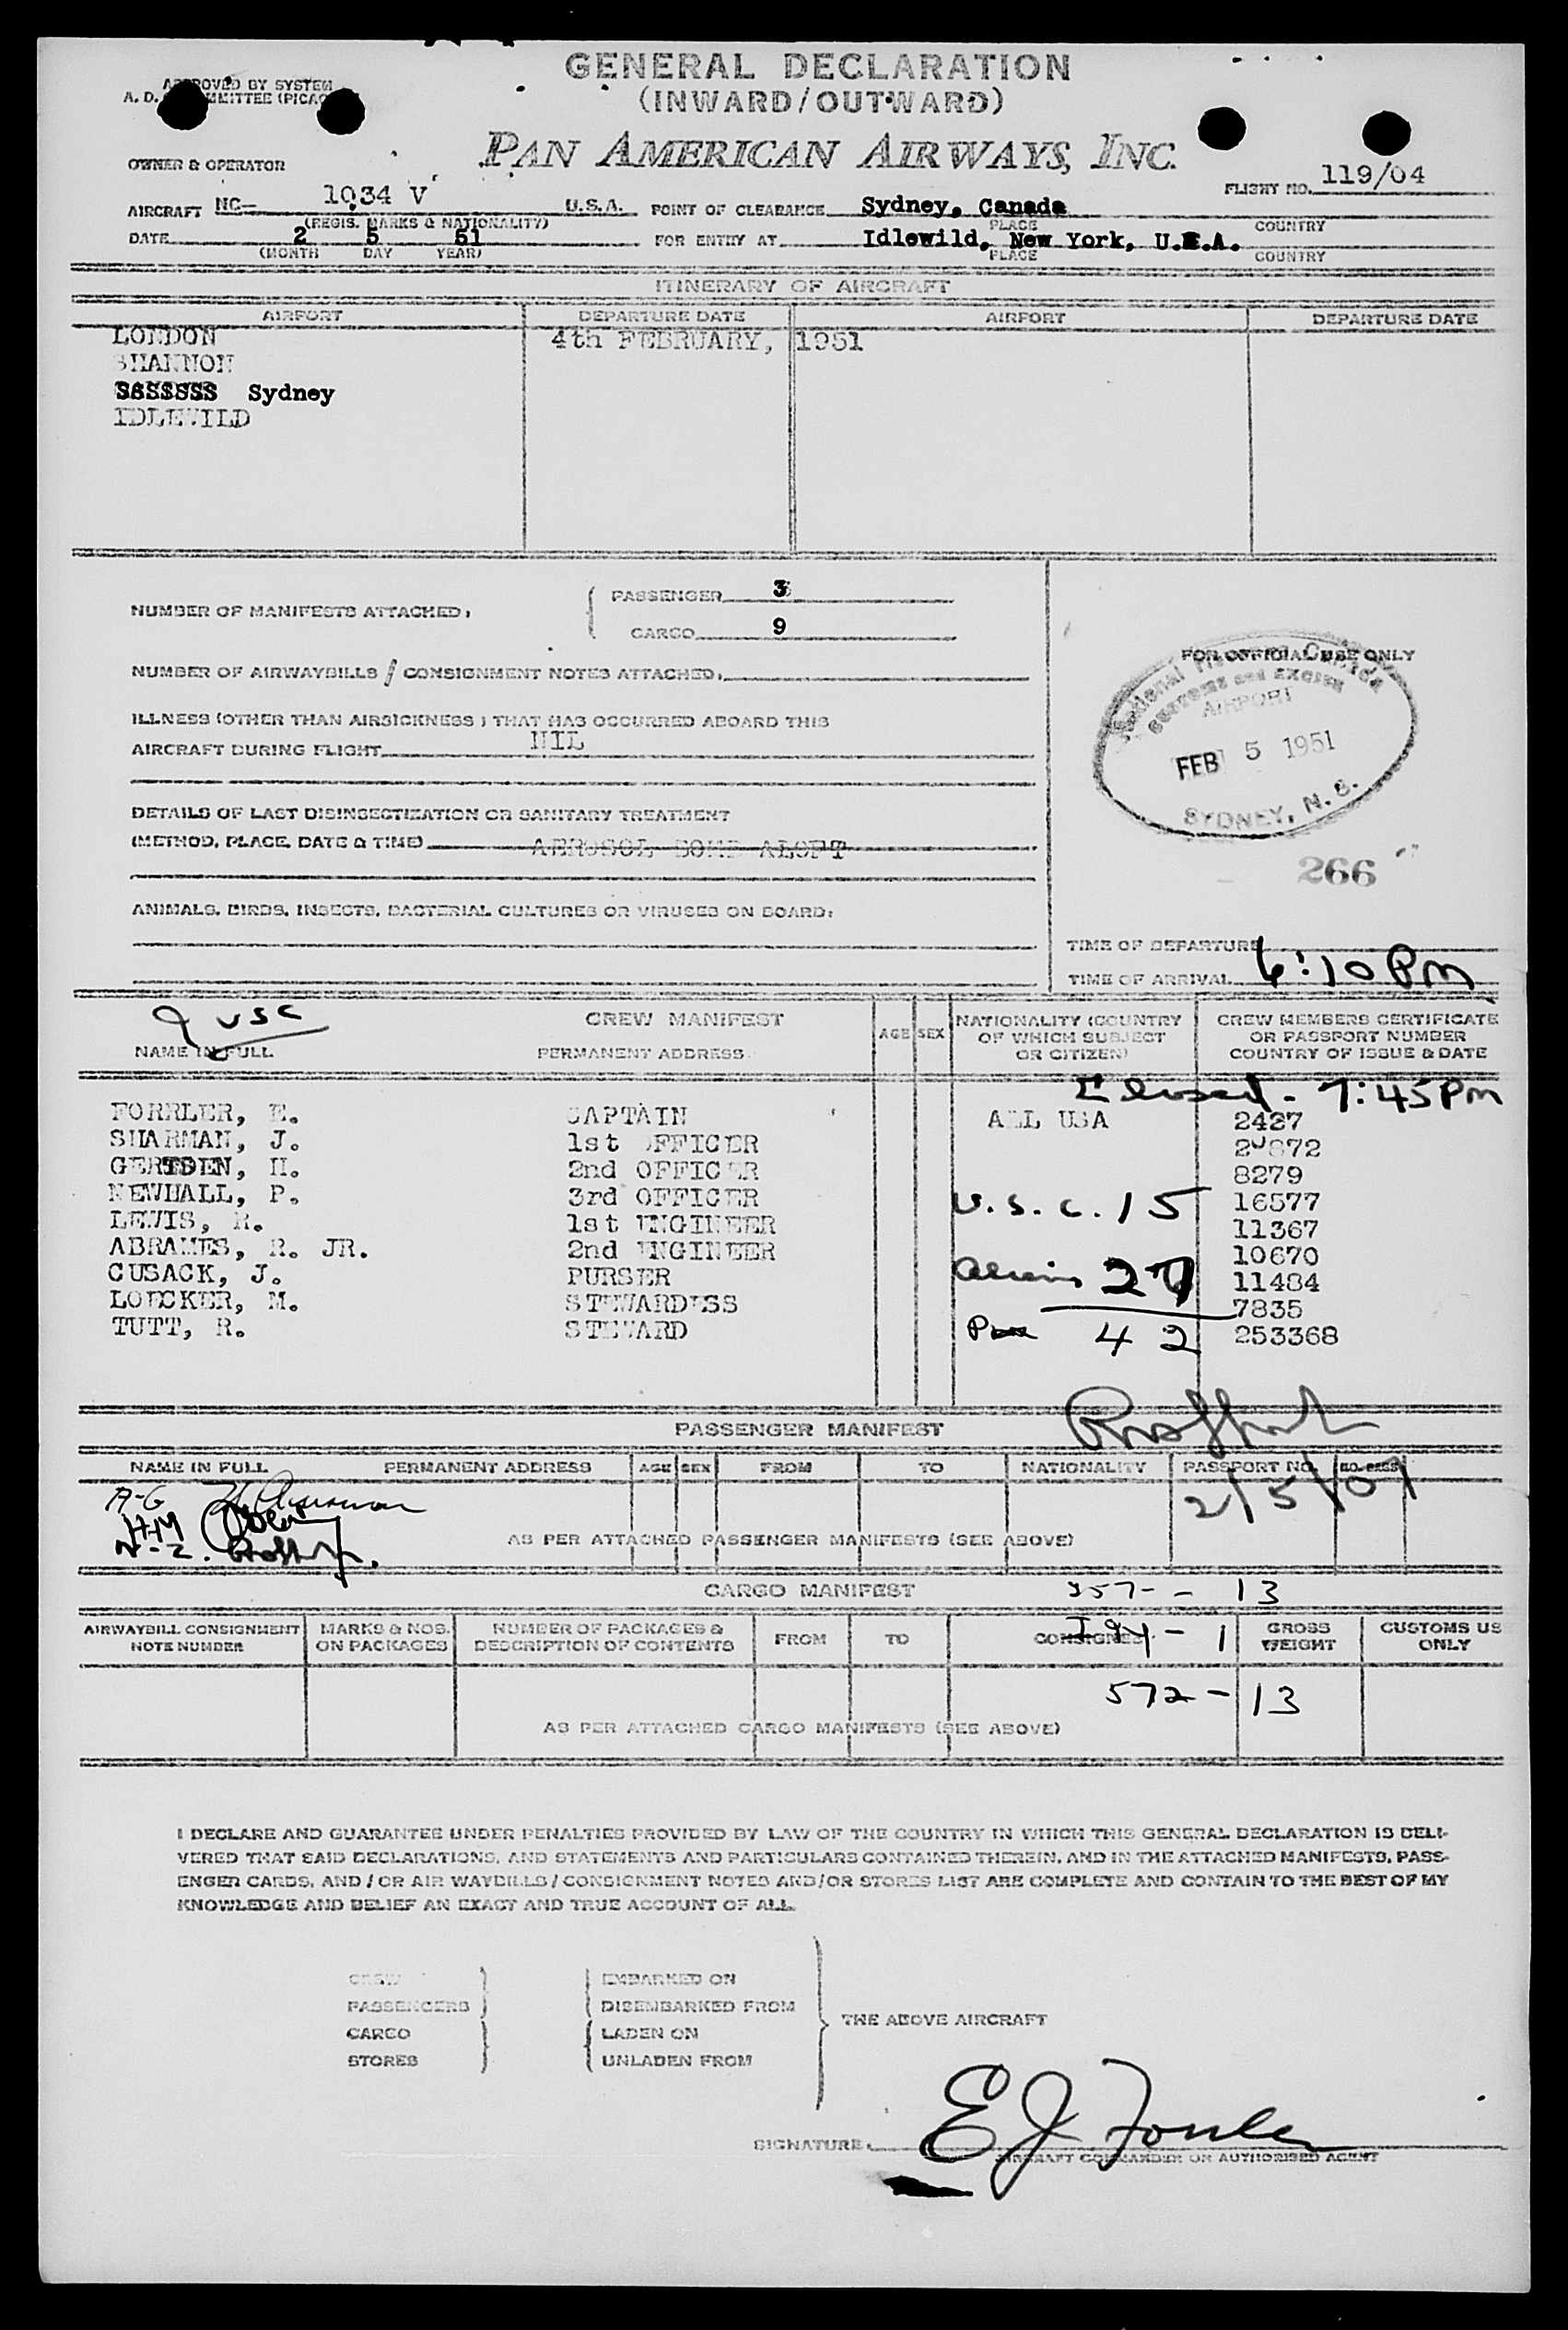 GENERAL DECLARATION
(INWARD/OUTWARD)
APPROVED BY SYSTEM
A. D. COMMITTEE (PICAO
PAN AMERICAN AIRWAYS, INC.
OWNER & OPERATOR
FLIGHT NO. 119/04
AIRCRAFT NC- 1034 V U.S.A. POINT OF CLEARANCE Sydney, Canada
(REGIS. MARKS & NATIONALITY) PLACE COUNTRY
DATE 2 5 51 FOR ENTRY AT Idlewild, New York, U.S.A.
(MONTH DAY YEAR) PLACE COUNTRY
ITINERARY OF AIRCRAFT
AIRPORT DEPARTURE DATE AIRPORT DEPARTURE DATE
LONDON 4th FEBRUARY, 1951
SHANNON
Sydney
IDLEWILD
NUMBER OF MANIFESTS ATTACHED: PASSENGER 3
CARGO 9
NUMBER OF AIRWAYBILLS / CONSIGNMENT NOTES ATTACHED:
ILLNESS (OTHER THAN AIRSICKNESS) THAT HAS OCCURRED ABOARD THIS
AIRCRAFT DURING FLIGHT NIL
DETAILS OF LAST DISINSECTIZATION OR SANITARY TREATMENT
(METHOD, PLACE, DATE & TIME) AEROSOL BOMB ALOFT
ANIMALS, BIRDS, INSECTS, BACTERIAL CULTURES OR VIRUSES ON BOARD:
FOR OFFICIAL USE ONLY
National Revenue Canada
CUSTOMS and EXCISE
AIRPORT
FEB 5 1951
SYDNEY, N. S.
266
TIME OF DEPARTURE
TIME OF ARRIVAL 6:10 PM
9 USC
CREW MANIFEST
NAME IN FULL PERMANENT ADDRESS AGE SEX NATIONALITY (COUNTRY OF WHICH SUBJECT OR CITIZEN) CREW MEMBERS CERTIFICATE OR PASSPORT NUMBER COUNTRY OF ISSUE & DATE
Closed - 7:45 PM
FORRLER, E. CAPTAIN ALL USA 2427
SHARMAN, J. 1st OFFICER
GERTSEN, H. 2nd OFFICER 8279
NEWHALL, P. 3rd OFFICER U.S.C. 15 16577
LEWIS, R. 1st ENGINEER 11367
ABRAMES, R. JR. 2nd ENGINEER 10670
CUSACK, J. PURSER Aliens 27 11484
LOECKER, M. STEWARDESS 7835
TUTT, R. STEWARD 42 253368
PASSENGER MANIFEST
NAME IN FULL PERMANENT ADDRESS AGE SEX FROM TO NATIONALITY PASSPORT NO. NO. BAGS
A-G
H-M
N-Z
2/5/51
AS PER ATTACHED PASSENGER MANIFESTS (SEE ABOVE)
CARGO MANIFEST
257 - - 13
AIRWAYBILL CONSIGNMENT NOTE NUMBER MARKS & NOS. ON PACKAGES NUMBER OF PACKAGES & DESCRIPTION OF CONTENTS FROM TO CONSIGNEE GROSS WEIGHT CUSTOMS US ONLY
I 94 - 1
572 - 13
AS PER ATTACHED CARGO MANIFESTS (SEE ABOVE)
I DECLARE AND GUARANTEE UNDER PENALTIES PROVIDED BY LAW OF THE COUNTRY IN WHICH THIS GENERAL DECLARATION IS DELI-
VERED THAT SAID DECLARATIONS, AND STATEMENTS AND PARTICULARS CONTAINED THEREIN, AND IN THE ATTACHED MANIFESTS, PASS-
ENGER CARDS, AND / OR AIR WAYBILLS / CONSIGNMENT NOTES AND/OR STORES LIST ARE COMPLETE AND CONTAIN TO THE BEST OF MY
KNOWLEDGE AND BELIEF AN EXACT AND TRUE ACCOUNT OF ALL.
CREW EMBARKED ON
PASSENGERS DISEMBARKED FROM
THE ABOVE AIRCRAFT
CARGO LADEN ON
STORES UNLADEN FROM
SIGNATURE: E J Fouler
AIRCRAFT COMMANDER OR AUTHORISED AGENT